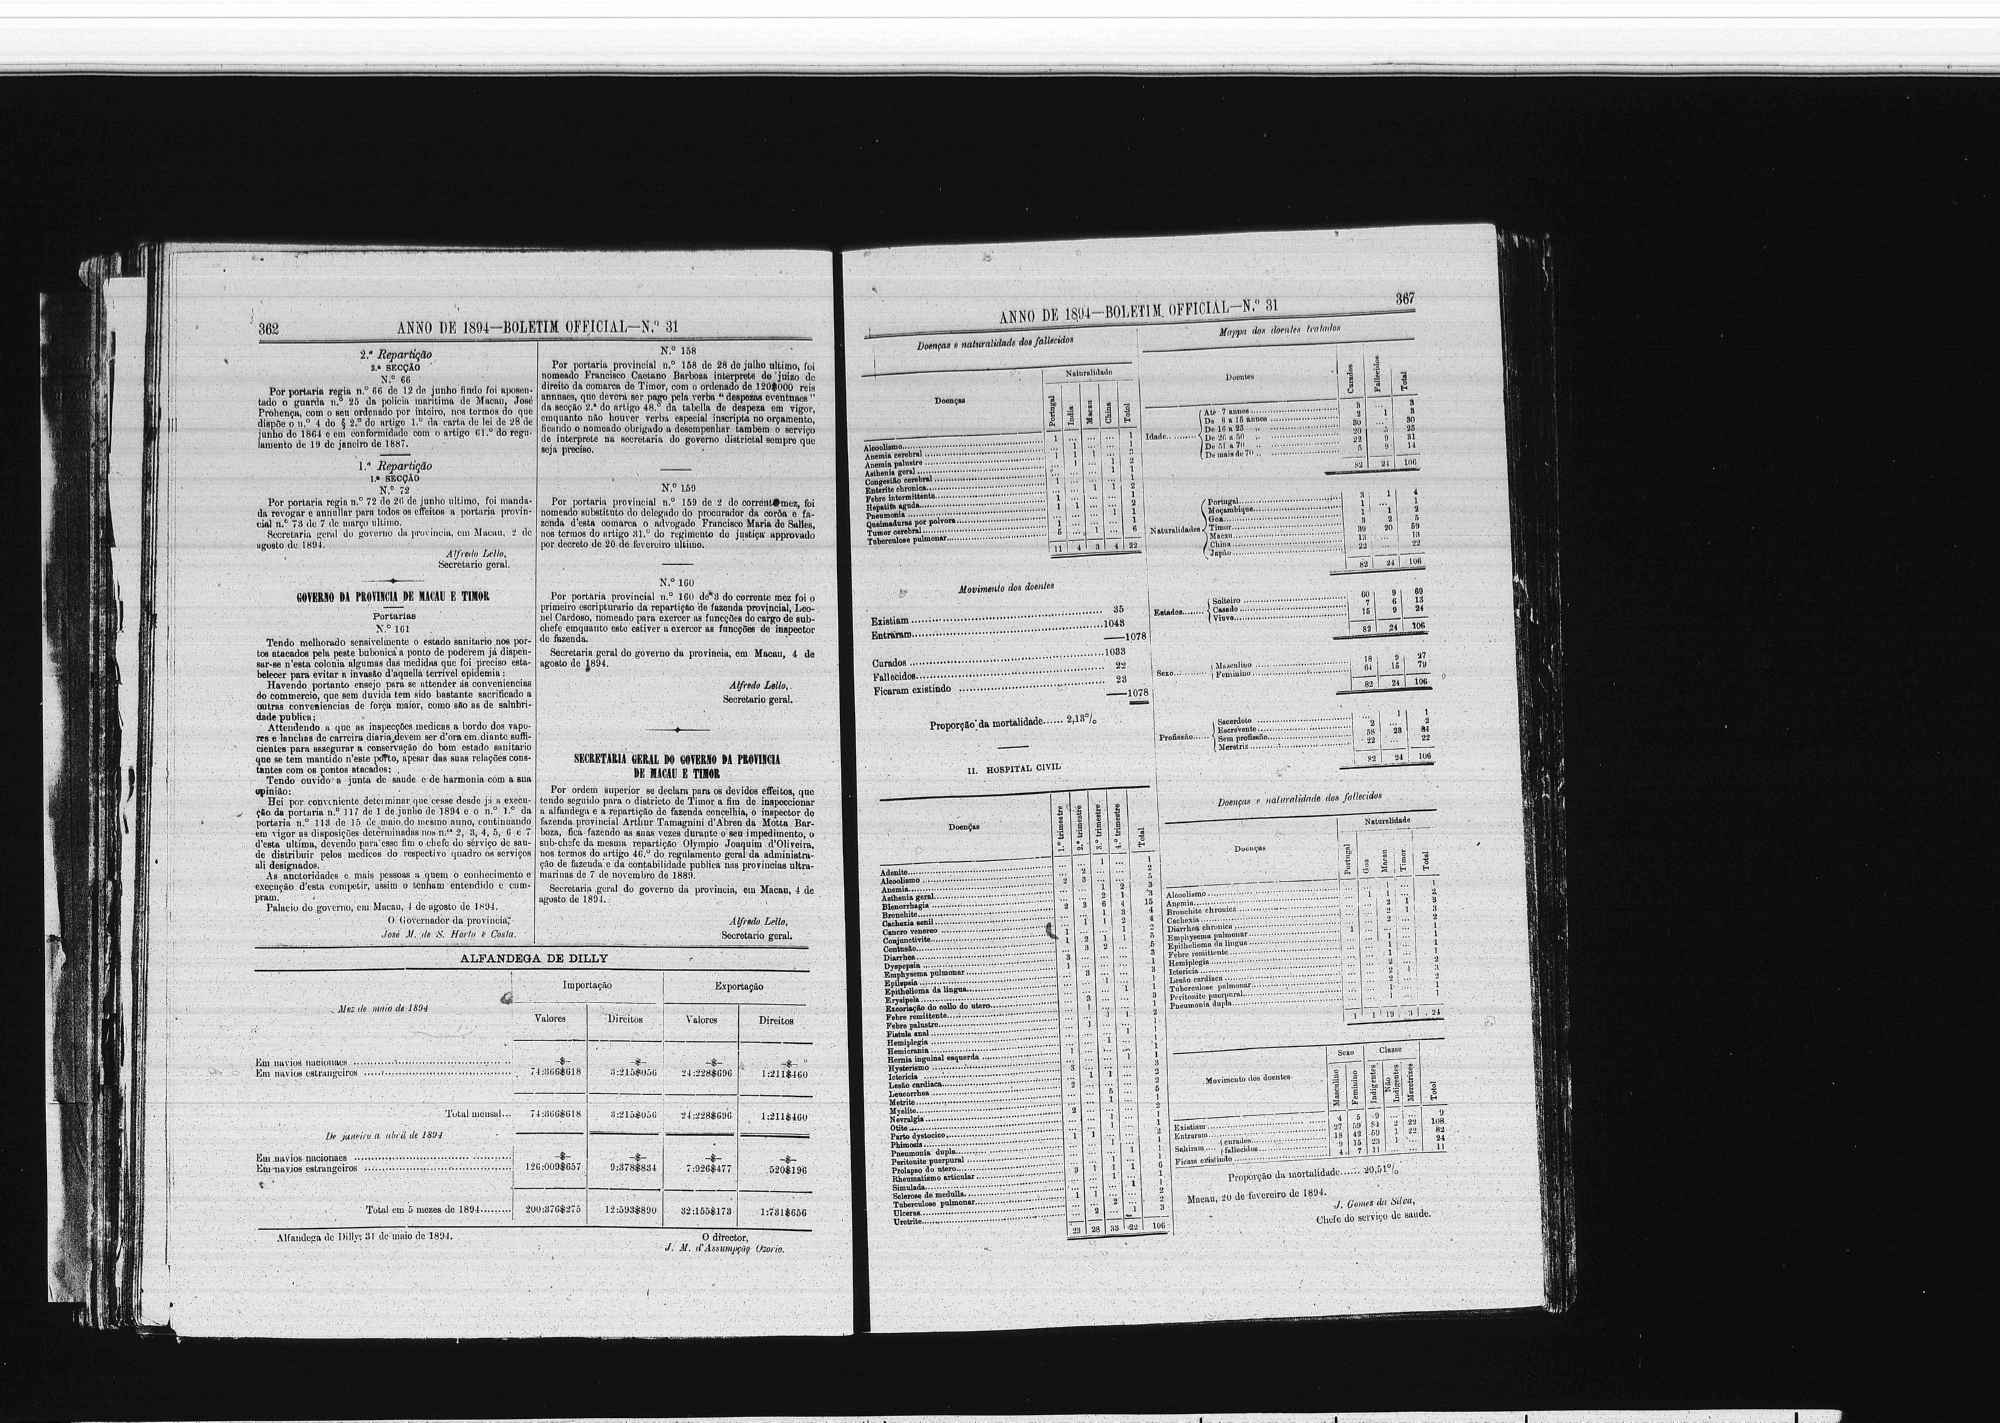 362
ANNO DE 1894—BOLETIM OFFICIAL—N.º 31
2.ª Repartição
2.ª SECÇÃO
N.º 66
Por portaria regia n.º 66 de 12 de junho findo foi aposen-
tado o guarda n.º 25 da policia maritima de Macau, José
Prohença, com o seu ordenado por inteiro, nos termos do que
dispõe o n.º 4 do § 2.º do artigo 1.º da carta de lei de 28 de
junho de 1864 e em conformidade com o artigo 61.º do regu-
lamento de 19 de janeiro de 1887.
1.ª Repartição
1.ª SECÇÃO
N.º 72
Por portaria regia n.º 72 de 26 de junho ultimo, foi manda-
da revogar e annullar para todos os effeitos a portaria provin-
cial n.º 73 de 7 de março ultimo.
Secretaria geral do governo da provincia, em Macau, 2 de
agosto de 1894.
Alfredo Lello,
Secretario geral.
GOVERNO DA PROVINCIA DE MACAU E TIMOR
Portarias
N.º 161
Tendo melhorado sensivelmente o estado sanitario nos por-
tos atacados pela peste bubonica a ponto de poderem já dispen-
sar-se n'esta colonia algumas das medidas que foi preciso esta-
belecer para evitar a invasão d'aquella terrivel epidemia:
Havendo portanto ensejo para se attender ás conveniencias
do commercio, que sem duvida tem sido bastante sacrificado a
outras conveniencias de força maior, como são as de salubri-
dade publica;
Attendendo a que as inspecções medicas a bordo dos vapo-
res e lanchas de carreira diaria devem ser d'ora em diante suffi-
cientes para assegurar a conservação do bom estado sanitario
que se tem mantido n'este porto, apesar das suas relações cons-
tantes com os pontos atacados;
Tendo ouvido a junta de saude e de harmonia com a sua
opinião:
Hei por conveniente determinar que cesse desde já a execu-
ção da portaria n.º 117 de 1 de junho de 1894 e o n.º 1.º da
portaria n.º 113 de 15 de maio do mesmo anno, continuando
em vigor as disposições determinadas nos n.ºs 2, 3, 4, 5, 6 e 7
d'esta ultima, devendo para esse fim o chefe do serviço de sau-
de distribuir pelos medicos do respectivo quadro os serviços
ali designados.
As auctoridades e mais pessoas a quem o conhecimento e
execução d'esta competir, assim o tenham entendido e cum-
pram.
Palacio do governo, em Macau, 4 de agosto de 1894.
O Governador da provincia,
José M. de S. Horta e Costa.
N.º 158
Por portaria provincial n.º 158 de 28 de julho ultimo, foi
nomeado Francisco Caetano Barboza interprete do juizo de
direito da comarca de Timor, com o ordenado de 120$000 reis
annuaes, que deverá ser pago pela verba "despezas eventuaes"
da secção 2.ª do artigo 48.º da tabella de despeza em vigor,
emquanto não houver verba especial inscripta no orçamento,
ficando o nomeado obrigado a desempenhar tambem o serviço
de interprete na secretaria do governo districtal sempre que
seja preciso.
N.º 159
Por portaria provincial n.º 159 de 2 do corrente mez, foi
nomeado substituto do delegado do procurador da corôa e fa-
zenda d'esta comarca o advogado Francisco Maria de Salles,
nos termos do artigo 31.º do regimento de justiça approvado
por decreto de 20 de fevereiro ultimo.
N.º 160
Por portaria provincial n.º 160 de 3 do corrente mez foi o
primeiro escripturario da repartição de fazenda provincial, Leo-
nel Cardoso, nomeado para exercer as funcções do cargo de sub-
chefe emquanto este estiver a exercer as funcções de inspector
de fazenda.
Secretaria geral do governo da provincia, em Macau, 4 de
agosto de 1894.
Alfredo Lello,
Secretario geral.
SECRETARIA GERAL DO GOVERNO DA PROVINCIA
DE MACAU E TIMOR
Por ordem superior se declara para os devidos effeitos, que
tendo seguido para o districto de Timor a fim de inspeccionar
a alfandega e a repartição de fazenda concelhia, o inspector de
fazenda provincial Arthur Tamagnini d'Abreu da Motta Bar-
boza, fica fazendo as suas vezes durante o seu impedimento, o
sub-chefe da mesma repartição Olympio Joaquim d'Oliveira,
nos termos do artigo 46.º do regulamento geral da administra-
ção de fazenda e da contabilidade publica nas provincias ultra-
marinas de 7 de novembro de 1889.
Secretaria geral do governo da provincia, em Macau, 4 de
agosto de 1894.
Alfredo Lello,
Secretario geral.
ALFANDEGA DE DILLY
Mez de maio de 1894
Importação Exportação
Valores Direitos Valores Direitos
Em navios nacionaes —$— —$— —$— —$—
Em navios estrangeiros 74:366$618 3:215$056 24:228$696 1:211$460
Total mensal... 74:366$618 3:215$056 24:228$696 1:211$460
De janeiro a abril de 1894
Em navios nacionaes —$— —$— —$— —$—
Em navios estrangeiros 126:009$657 9:378$834 7:926$477 520$196
Total em 5 mezes de 1894 200:376$275 12:593$890 32:155$173 1:731$656
Alfandega de Dilly; 31 de maio de 1894.
O director,
J. M. d'Assumpção Ozorio.
ANNO DE 1894—BOLETIM OFFICIAL—N.º 31
367
Doenças e naturalidade dos fallecidos
Doenças
Naturalidade
Portugal India Macau China Total
Alcoolismo
Anemia cerebral
Anemia palustre
Asthenia geral
Congestão cerebral
Enterite chronica
Febre intermittente
Hepatite aguda
Pneumonia
Queimaduras por polvora
Tumor cerebral
Tuberculose pulmonar
11 4 3 4 22
Movimento dos doentes
Existiam 35
Entraram 1043
—1078
Curados 1033
Fallecidos 22
Ficaram existindo 23
—1078
Proporção da mortalidade...... 2,13%
II. HOSPITAL CIVIL
Doenças
1.º trimestre 2.º trimestre 3.º trimestre 4.º trimestre Total
Adenite
Alcoolismo
Anemia
Asthenia geral
Blenorrhagia
Bronchite
Cachexia senil
Cancro venereo
Conjunctivite
Contusão
Diarrhea
Dyspepsia
Emphysema pulmonar
Epilepsia
Epithelioma da lingua
Erysipela
Excoriação do collo do utero
Febre remittente
Febre palustre
Fistula anal
Hemiplegia
Hemicrania
Hernia inguinal esquerda
Hysterismo
Ictericia
Lesão cardiaca
Leucorrhea
Metrite
Myelite
Nevralgia
Otite
Parto dystocico
Phimosis
Pneumonia dupla
Peritonite puerpural
Prolapso do utero
Rheumatismo articular
Simulada
Sclerose de medulla
Tuberculose pulmonar
Ulceras
Uretrite
23 28 33 22 106
Mappa dos doentes tratados
Doentes
Curados Fallecidos Total
Idade
Até 7 annos 3 3
De 8 a 15 annos 2 1 3
De 16 a 25 „ 30 ... 30
De 26 a 50 „ 20 5 25
De 51 a 70 „ 22 9 31
De mais de 70 „ 5 9 14
82 24 106
Naturalidades
Portugal 3 1 4
Moçambique 1 ... 1
Goa 1 1 2
Timor 3 2 5
Macau 39 20 59
China 13 ... 13
Japão 22 22
82 24 106
Estados
Solteiro 60 9 69
Casado 7 6 13
Viuvo 15 9 24
82 24 106
Sexo
Masculino 18 9 27
Feminino 64 15 79
82 24 106
Profissão
Sacerdote ... 1 1
Escrevente 2 ... 2
Sem profissão 58 23 81
Meretriz 22 ... 22
82 24 106
Doenças e naturalidade dos fallecidos
Doenças
Naturalidade
Portugal Goa Macau Timor Total
Alcoolismo
Anemia
Bronchite chronica
Cachexia
Diarrhea chronica
Emphysema pulmonar
Epithelioma da lingua
Febre remittente
Hemiplegia
Ictericia
Lesão cardiaca
Tuberculose pulmonar
Peritonite puerpural
Pneumonia dupla
1 1 19 3 24
Movimento dos doentes
Sexo Classe
Masculino Feminino Indigentes Não Indigentes Meretrizes Total
Existiam 4 5 9 ... ... 9
Entraram 27 59 84 2 22 108
Sahiram
curados 18 42 59 1 22 82
fallecidos 9 15 23 1 ... 24
Ficam existindo 4 7 11 ... ... 11
Proporção da mortalidade...... 20,51%
Macau, 20 de fevereiro de 1894.
J. Gomes da Silva,
Chefe do serviço de saude.